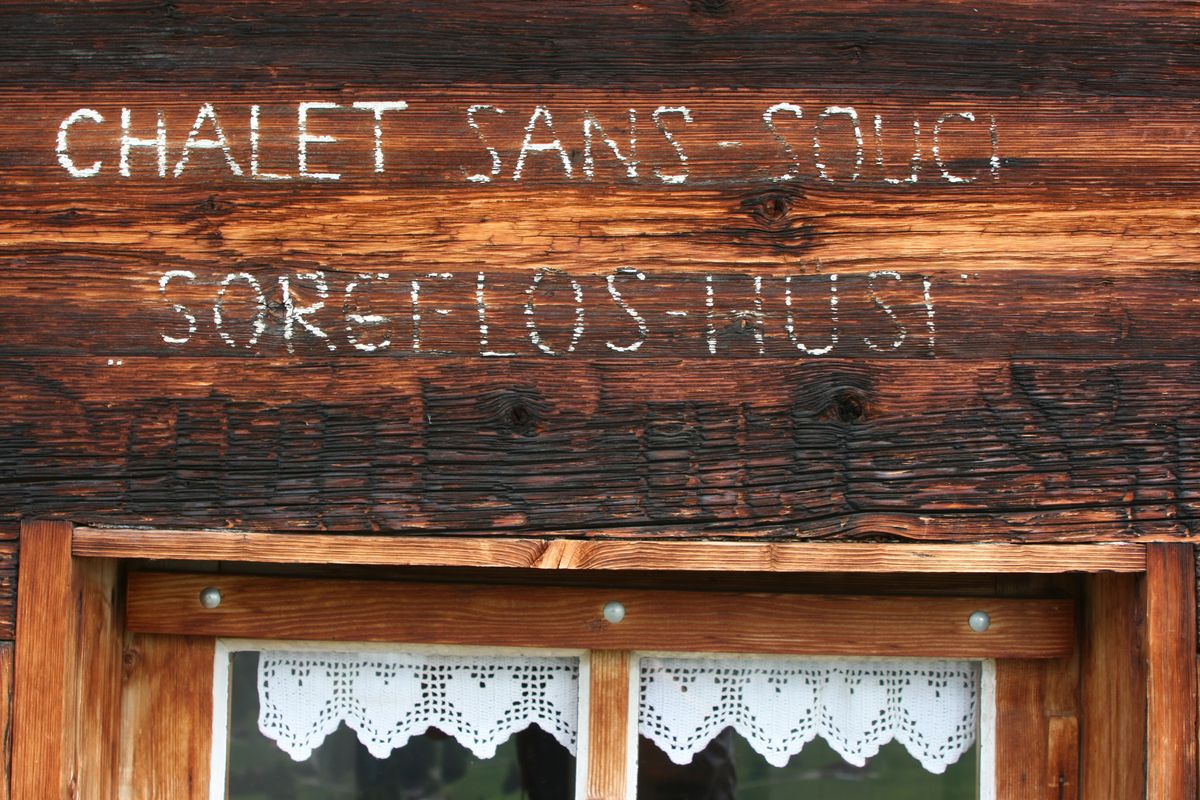 CHALET SANS-SOUCI
SORGELOS-HÜSI